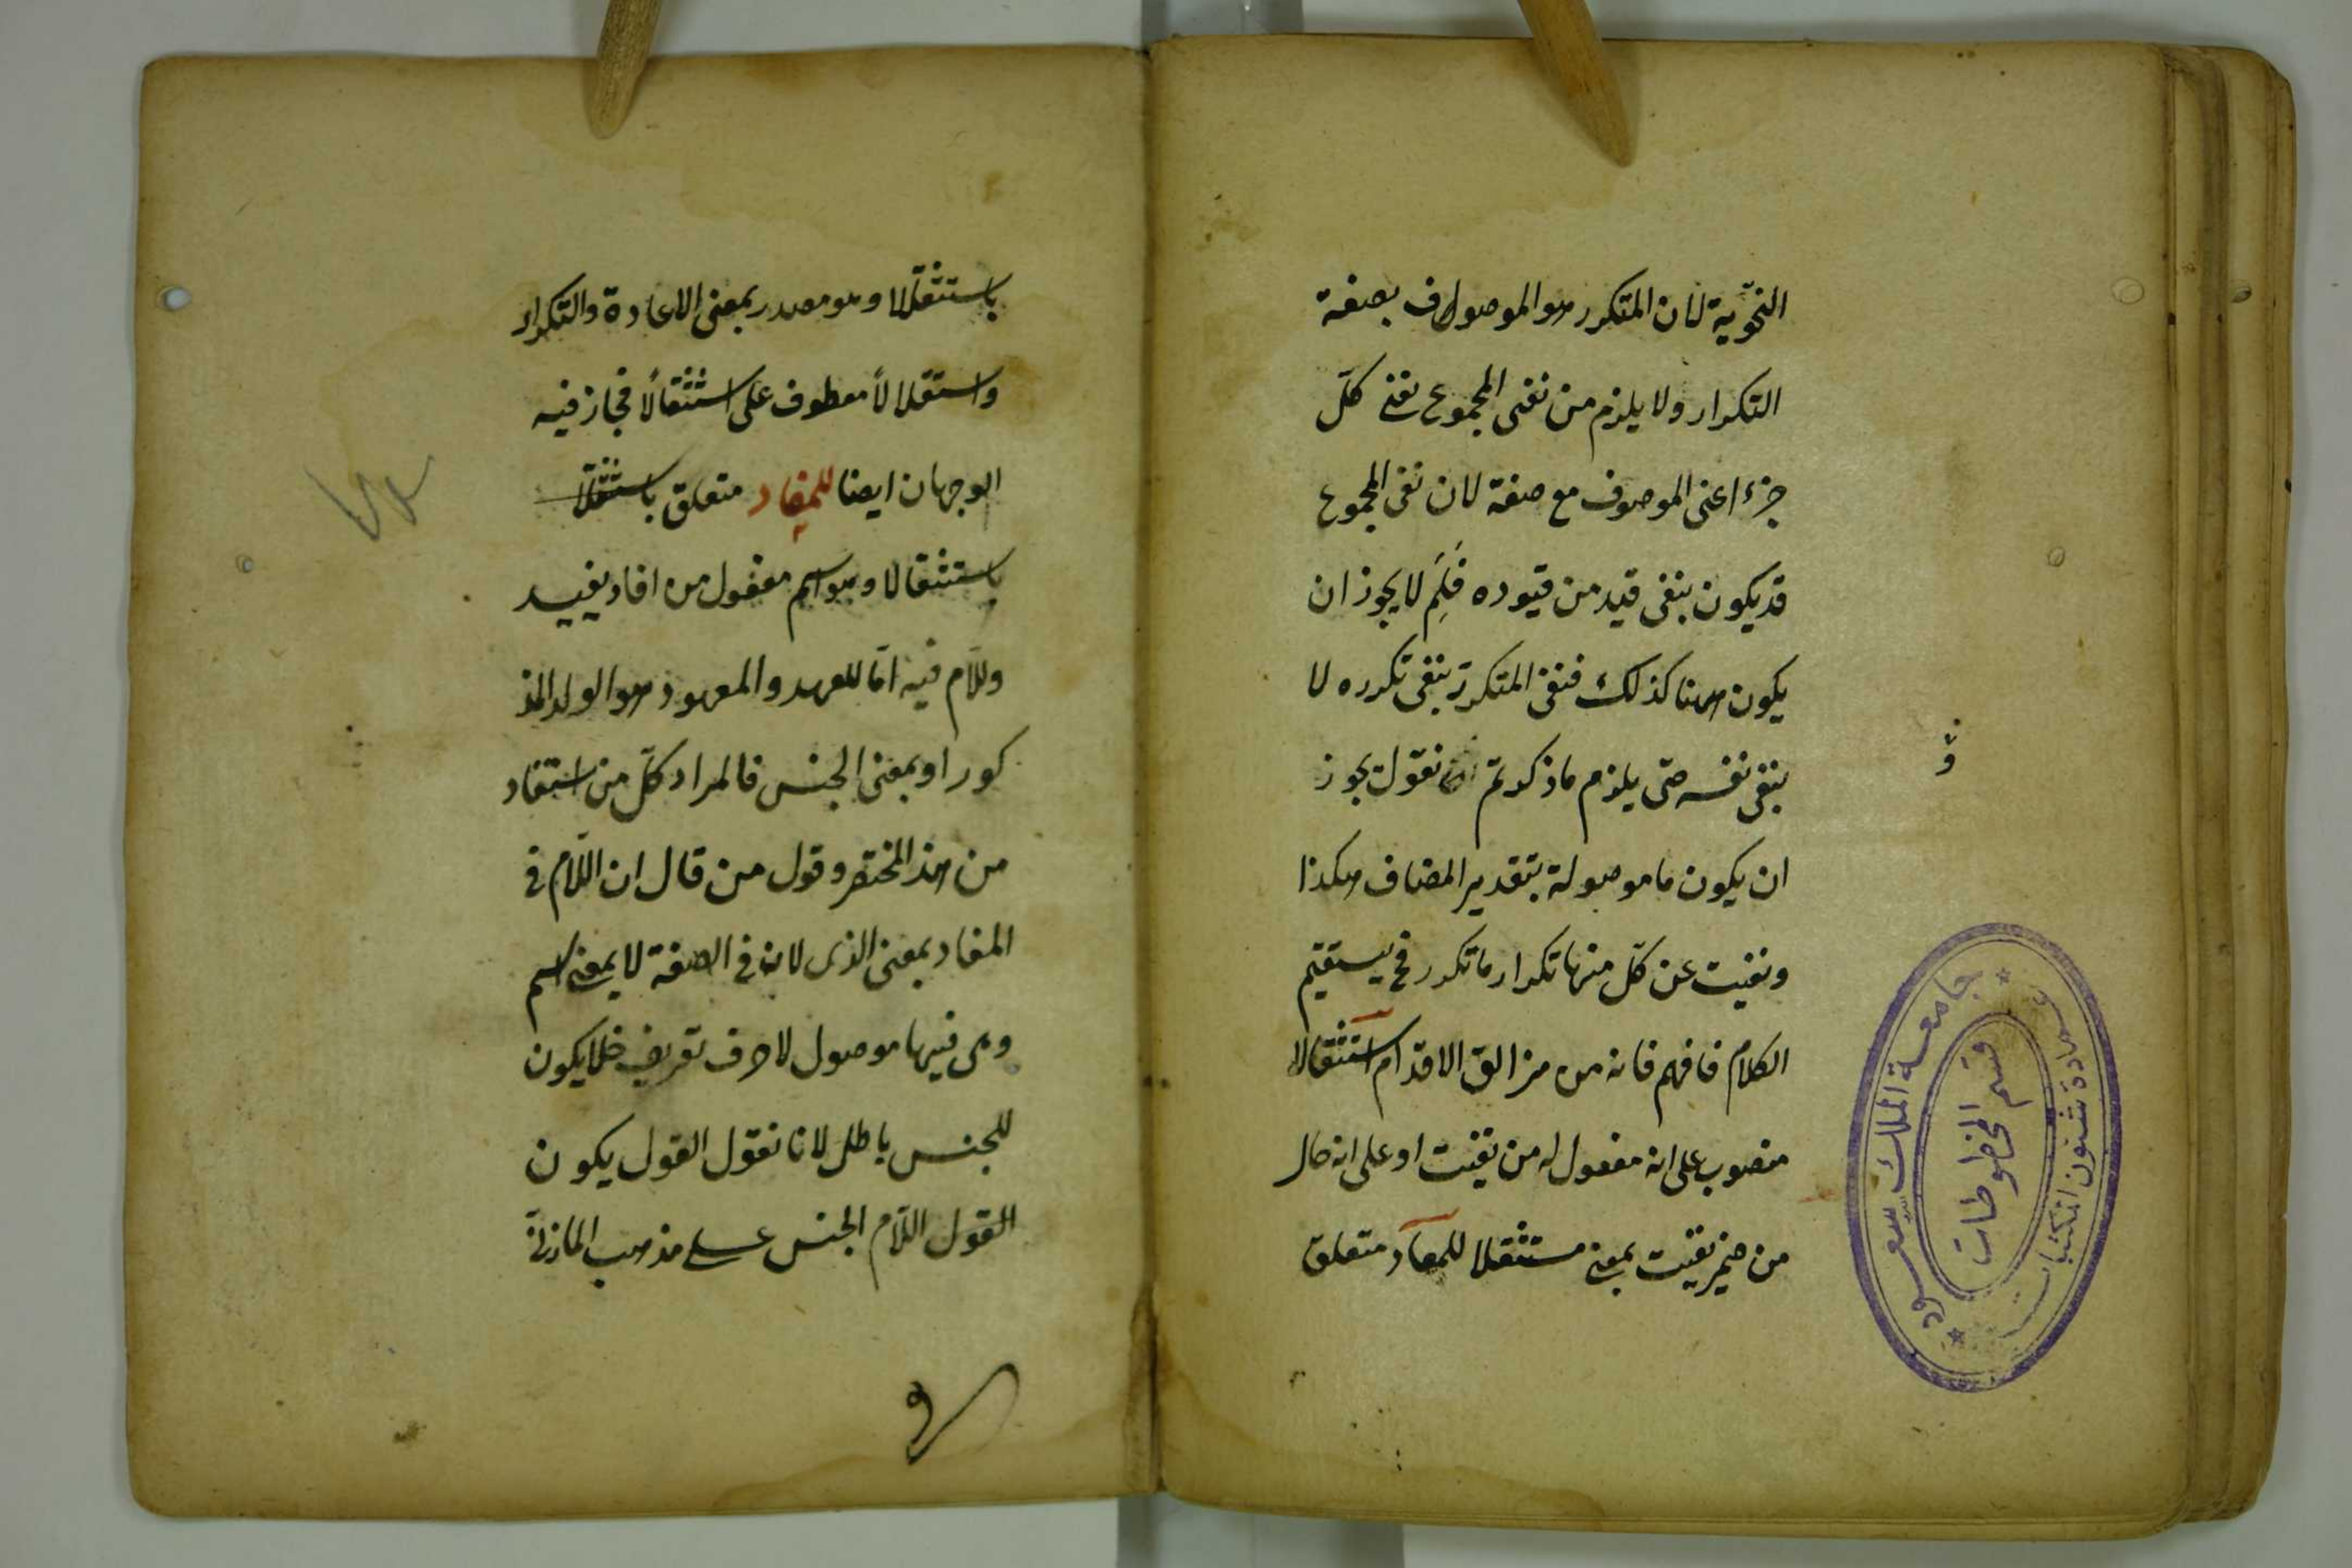 النحوية لان المتكرر هو الموصوف بصفة
التكرار ولا يلزم من نفى المجموع نفى كلّ
جزء اعنى الموصوف مع صفة لان نفى المجموع
قد يكون بنفى قيد من قيوده فَلِمَ لا يجوز ان
يكون هنا كذلك فنفى المتكرّر بنفى تكرره لا
بنفى نفسه حتى يلزم ما ذكر ثم نقول يجوز
ان يكون ما موصولة بتقدير المضاف هكذا
ونفيت عن كلّ منها تكرار ما تكرر فح يستقيم
الكلام فافهم فانه من مزالق الاقدام استثقالا
منصوب على انه مفعول له من نفيت او على انه حال
من ضمير نفيت بمعنى مستثقلا للمعاد متعلق
باستثقلالا وهو مصدر بمعنى الاعادة والتكرار
واستقلالاً معطوف على استثقالًا فجاز فيه
الوجهان ايضا للمفاد متعلق
باستثقالا وهو اسم مفعول من افاد يفيد
وللّام فيه امّا للعهد والمعهود هو الولد المذ
كور او بمعنى الجنس فالمراد كلّ من استفاد
من هذ المختصر وقول من قال ان اللّام فى
المفاد بمعنى الذى لانه فى الصفة لا بمعنى اسم
وهى فيها موصول لا حرف تعريف فلا يكون
للجنس باطل لانا نقول القول يكون
القول اللّام الجنس على مذهب المازنى
جامعة الملك سعود
قسم المخطوطات
عمادة شئون المكتبات